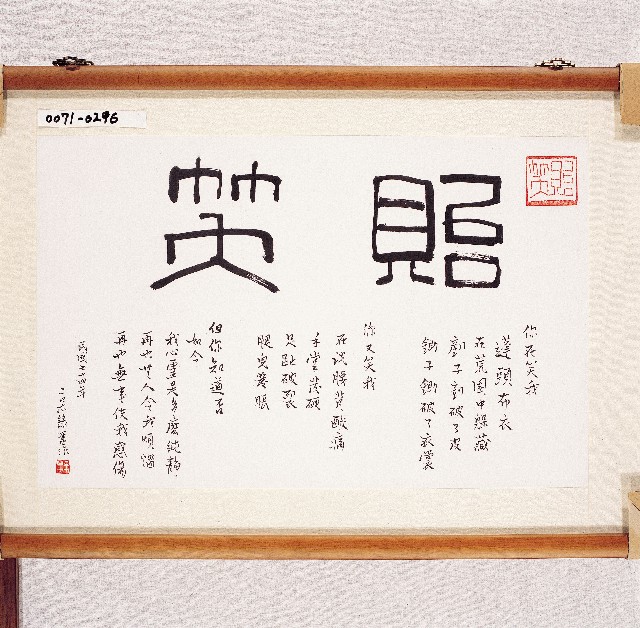 0071-0296
貽笑
你在笑我
蓬頭布衣
在荒園中躲藏
子割破了皮
鋤子鋤破了衣裳
你又笑我
在說腰背酸痛
手掌落硬
足趾破裂
但你知道否
如今
我心靈是多麼純靜
再也人令我煩惱
再也無事使我悲傷
民國七十四年